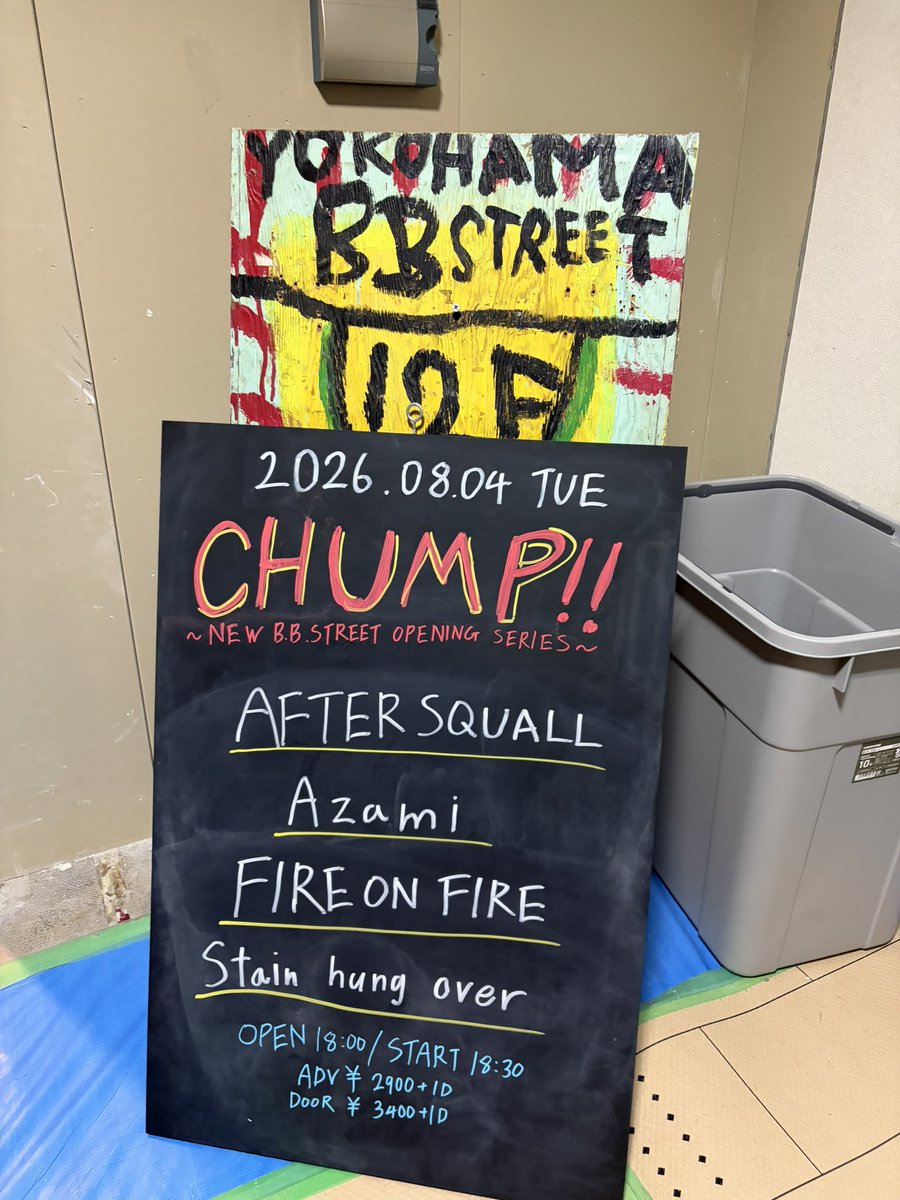 YOKOHAMA
BBSTREET
12F
2026.08.04 TUE
CHUMP!!
~NEW B.B.STREET OPENING SERIES~
AFTER SQUALL
Azami
FIRE ON FIRE
Stain hung over
OPEN 18:00/START 18:30
ADV ¥ 2900+1D
DOOR ¥ 3400+1D